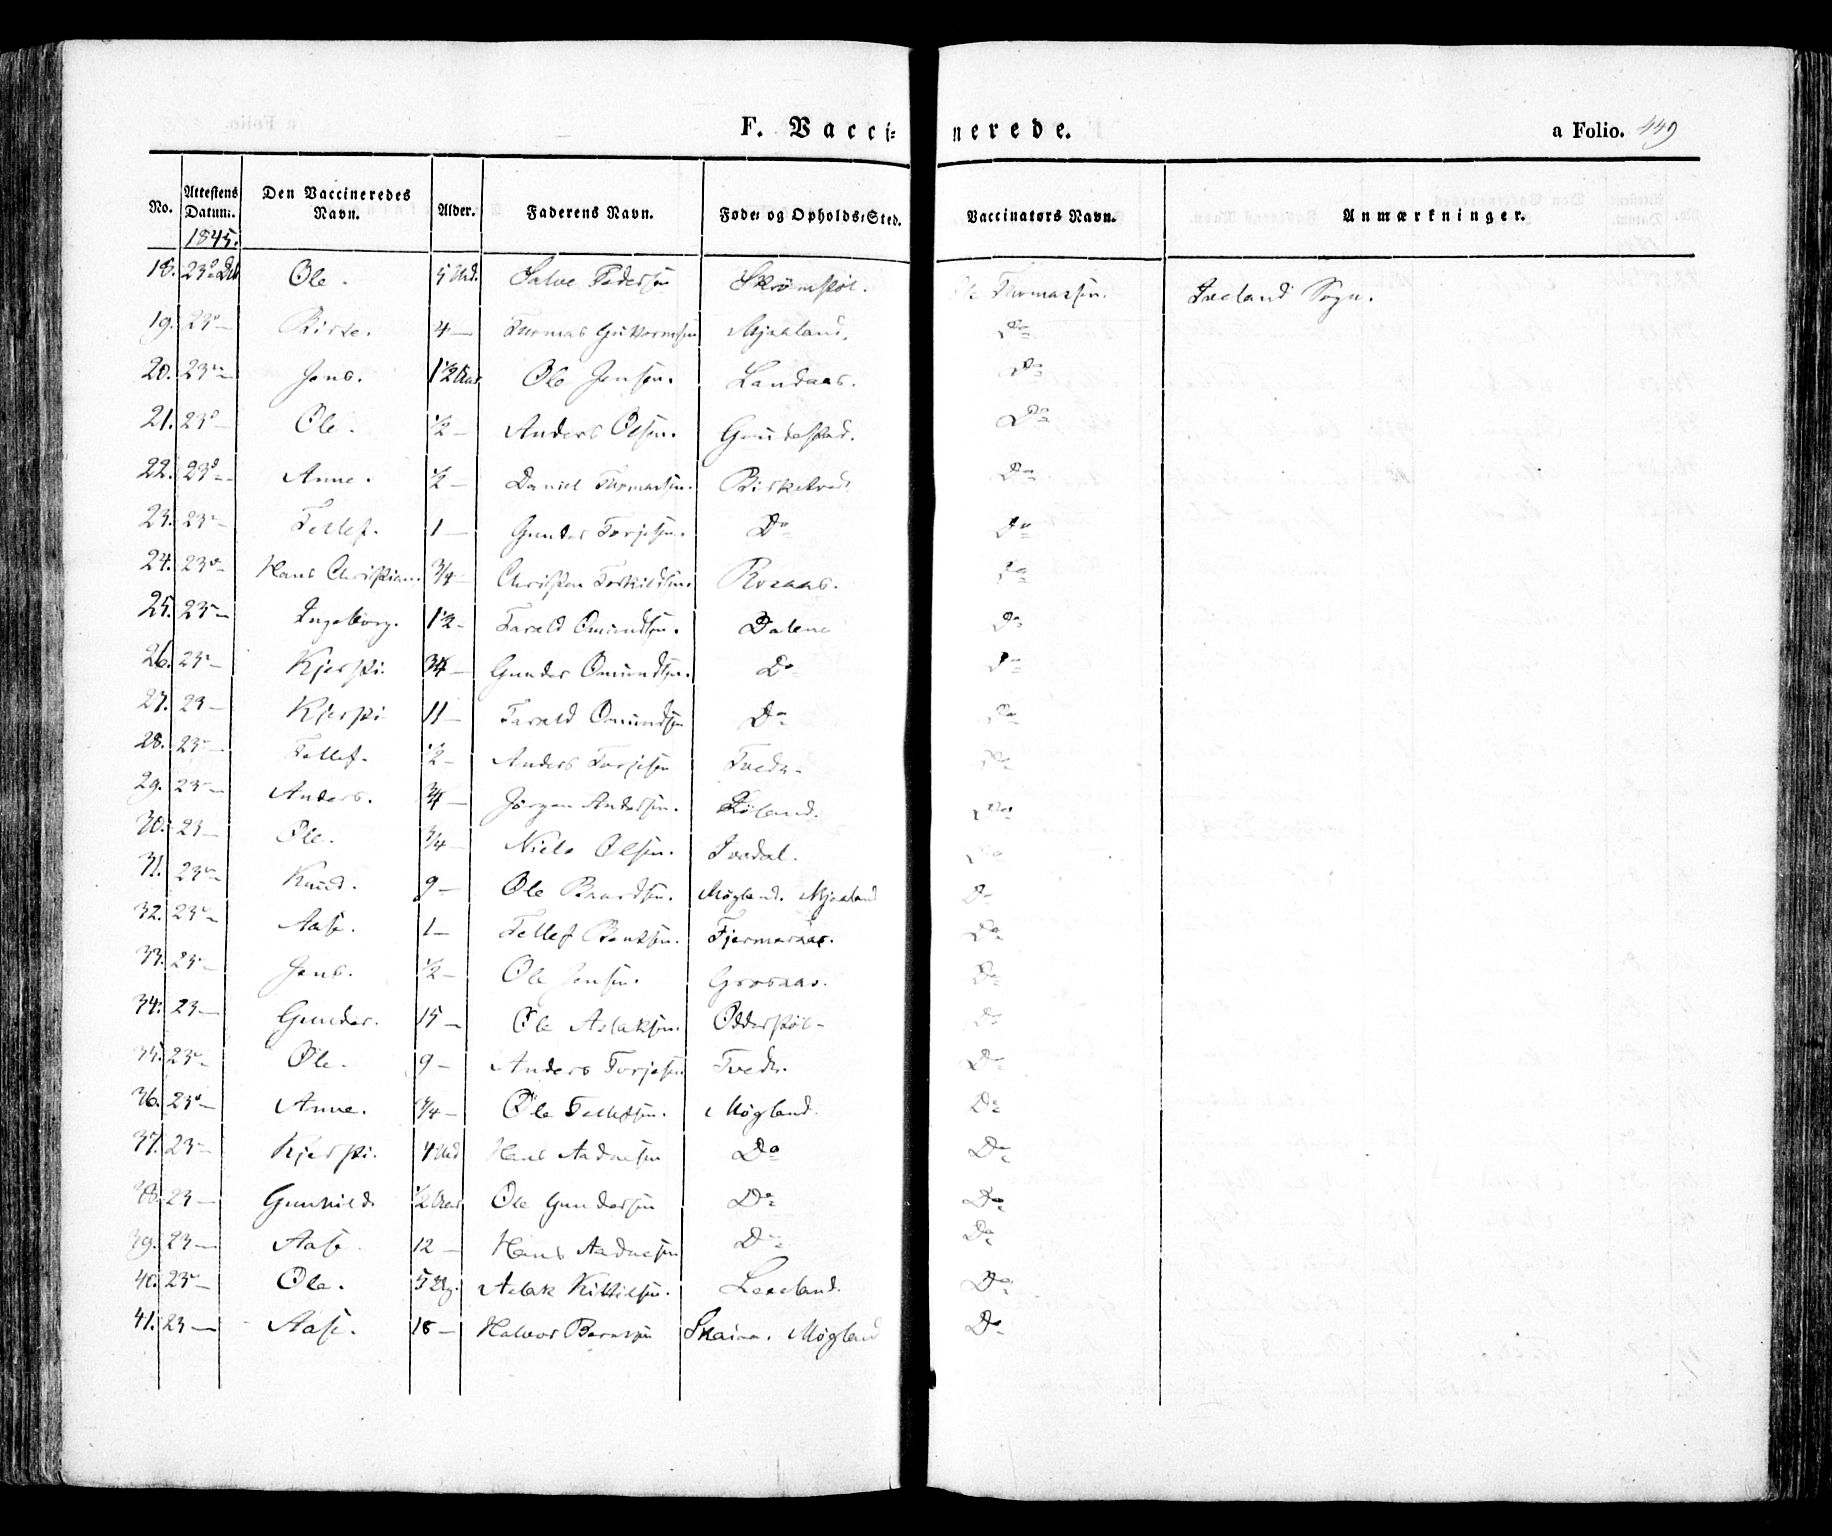 F. Vaccinerede.
a Folio. 449
No. | Attestens Datum. 1845. | Den Vaccineredes Navn. | Alder. | Faderens Navn. | Føde- og Opholds-Sted. | Vaccinators Navn. | Anmærkninger.
18. | 23d | Ole. | 5 | Salve Pedersen | Skrømstøl. | Thomassen. | Iveland Sogn.
19. | 23d — | Birte. | 4 — | Thomas Guttormsen | Mjaaland. | Do
20. | 23 — | Jens. | 1½ Aar | Ole Jensen. | Landaas. | Do
21. | 23d — | Ole. | ½ — | Anders Olsen. | | Do
22. | 23d — | Anne. | ½ — | Daniel Thomassen. | Birketvedt | Do
23. | 23 — | Tellef. | 1 — | Gunder Torjesen. | Do | Do
24. | 23d — | Hans Christian. | ¾ — | Christen Torkildsen. | Rosaas. | Do
25. | 23 — | Ingeborg. | 1½ — | Tarald Omundsen. | Dalene | Do
26. | 23 — | Kjersti. | ¾ — | Gunder Omundsen. | Do | Do
27. | 23 — | Kjersti | 11 — | Tarald Omundsen | Do | Do
28. | 23 — | Tellef. | ½ — | Anders Torjesen | Tvede. | Do
29. | 23 — | Anders. | ¾ — | Jørgen Andersen. | | Do
30. | 23 — | Ole. | ¾ — | Niels Olsen. | Ivedal. | Do
31. | 23 — | Knud. | 9 — | Ole Baardsen. | Møgland. Mjaaland | Do
32. | 23 — | Aase. | 1 — | Tellef Bentsen. | Fjermeraas. | Do
33. | 23 — | Jens. | ½ — | Ole Jensen. | Grosaas. | Do
34. | 23 — | Gunder. | 15 — | Ole Aslaksen. | Odderstøl — | Do
35. | 23 — | Ole. | 9 — | Anders Torjesen | Tvede. | Do
36. | 23d — | Anne. | ¾ — | Ole Tellefsen. | Møgland. | Do
37. | 23 — | Kjersti. | 4 | Hans Aadnesen | Do | Do
38. | 23 — | Gunhild. | ½ Aar | Ole Gundersen | Do | Do
39. | 23 — | Aase. | 12 — | Hans Aadnesen | Do | Do
40. | 23 — | Ole. | 5 | Aslak Kittilsen. | | Do
41. | 23 — | Aase. | 18 — | Halvor | Skaiaa. Møgland | Do